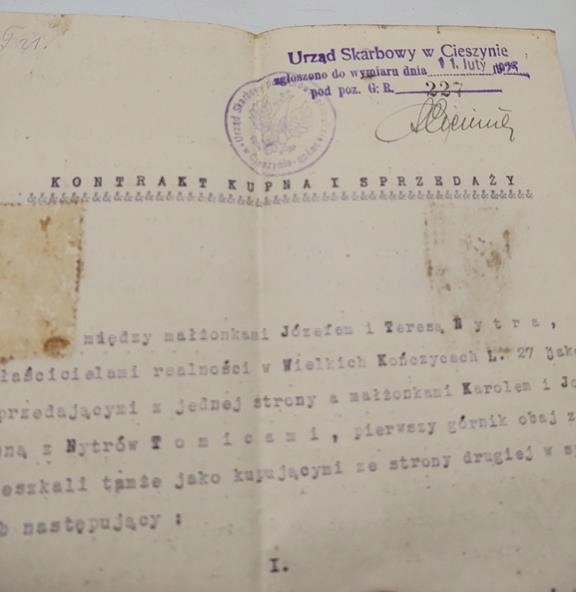 Urząd Skarbowy w Cieszynie
zgłoszono do wymiaru dnia 11. luty
pod poz. G. R. 227
Urząd Skarbowy
w Cieszynie
KONTRAKT KUPNA I SPRZEDAŻY
&&&&&&&&&&&&&&&&&&&&&&&&&&&&&&&&&&&&&&&&&&&
między małżonkami Józefem i Teresą Nytra,
łaścicielami realności w Wielkich Kończycach L. 27 jako
przedającymi z jednej strony a małżonkami Karolem i Jo
ną z Nytrów Tomicami, pierwszy górnik obaj z
eszkali tamże jako kupującymi ze strony drugiej w sp
b następujący :
I.